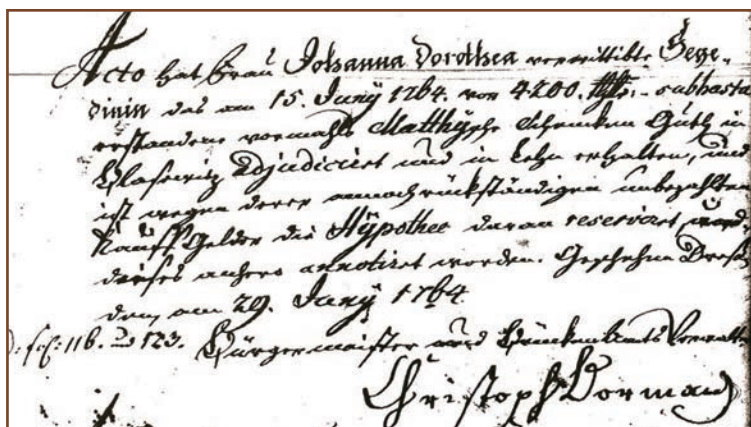 Acto hat Frau Johanna Dorothea verwittibte Sege-
dinin das am 15. Juny 1764. vor 4200. thlr. - subhasta
erstandene vormahls Matthysche Schencken Guth in
Blasewitz adjudiciret und in Lehn erhalten, und
ist wegen derer annoch rückständigen unbezahlten
Kauff Gelder die Hypothec daran reserviret, und
dieses anhero annotiret worden. Geschehen Dreß-
den, am 29. Juny 1764.
fol: 116. und 123. Bürgermeister und Brücken Amts Verwalter
Christoph Vorman